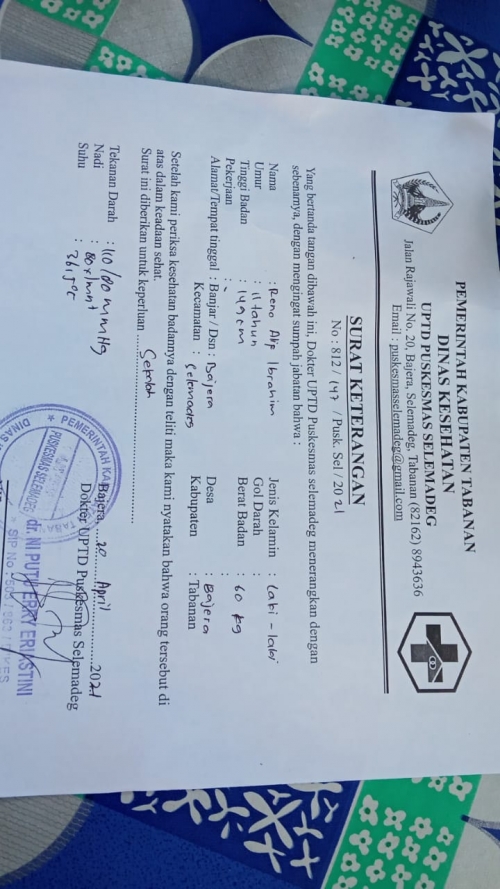 PEMERINTAH KABUPATEN TABANAN
DINAS KESEHATAN
UPTD PUSKESMAS SELEMADEG
Jalan Rajawali No. 20, Bajera, Selemadeg, Tabanan (82162) 8943636
Email : puskesmasselemadeg@gmail.com
SURAT KETERANGAN
No : 812 / 147 / Pusk. Sel / 2021
Yang bertanda tangan dibawah ini, Dokter UPTD Puskesmas selemadeg menerangkan dengan
sebenarnya, dengan mengingat sumpah jabatan bahwa :
Nama : Reno Alif Ibrahim Jenis Kelamin : Laki - laki
Umur : 11 tahun Gol Darah :
Tinggi Badan : 149 cm Berat Badan : 60 kg
Pekerjaan : -
Alamat/Tempat tinggal : Banjar / Dsn : Bajera Desa : Bajera
Kecamatan : Selemadeg Kabupaten : Tabanan
Setelah kami periksa kesehatan badannya dengan teliti maka kami nyatakan bahwa orang tersebut di
atas dalam keadaan sehat.
Surat ini diberikan untuk keperluan ..... Sekolah .....
Tekanan Darah : 110/80 mmHg
Nadi : 88x/mnt
Suhu : 36,5°C
Bajera, 20 April 2021
Dokter UPTD Puskesmas Selemadeg
PEMERINTAH KAB
PUSKESMAS SELEMADEG
DINAS
dr. NI PUTU ERRY ERIASTINI
SIP No